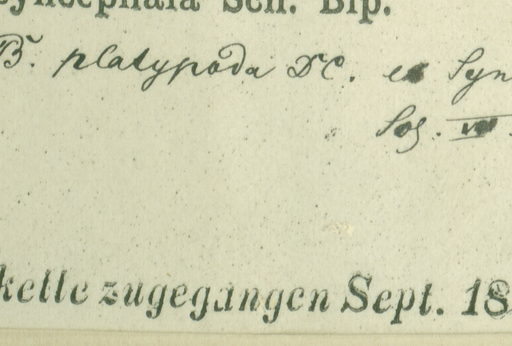 syncephala Sch. Bip.
B. platypoda DC. ex Syn
Sos.
kelle zugegangen Sept. 18